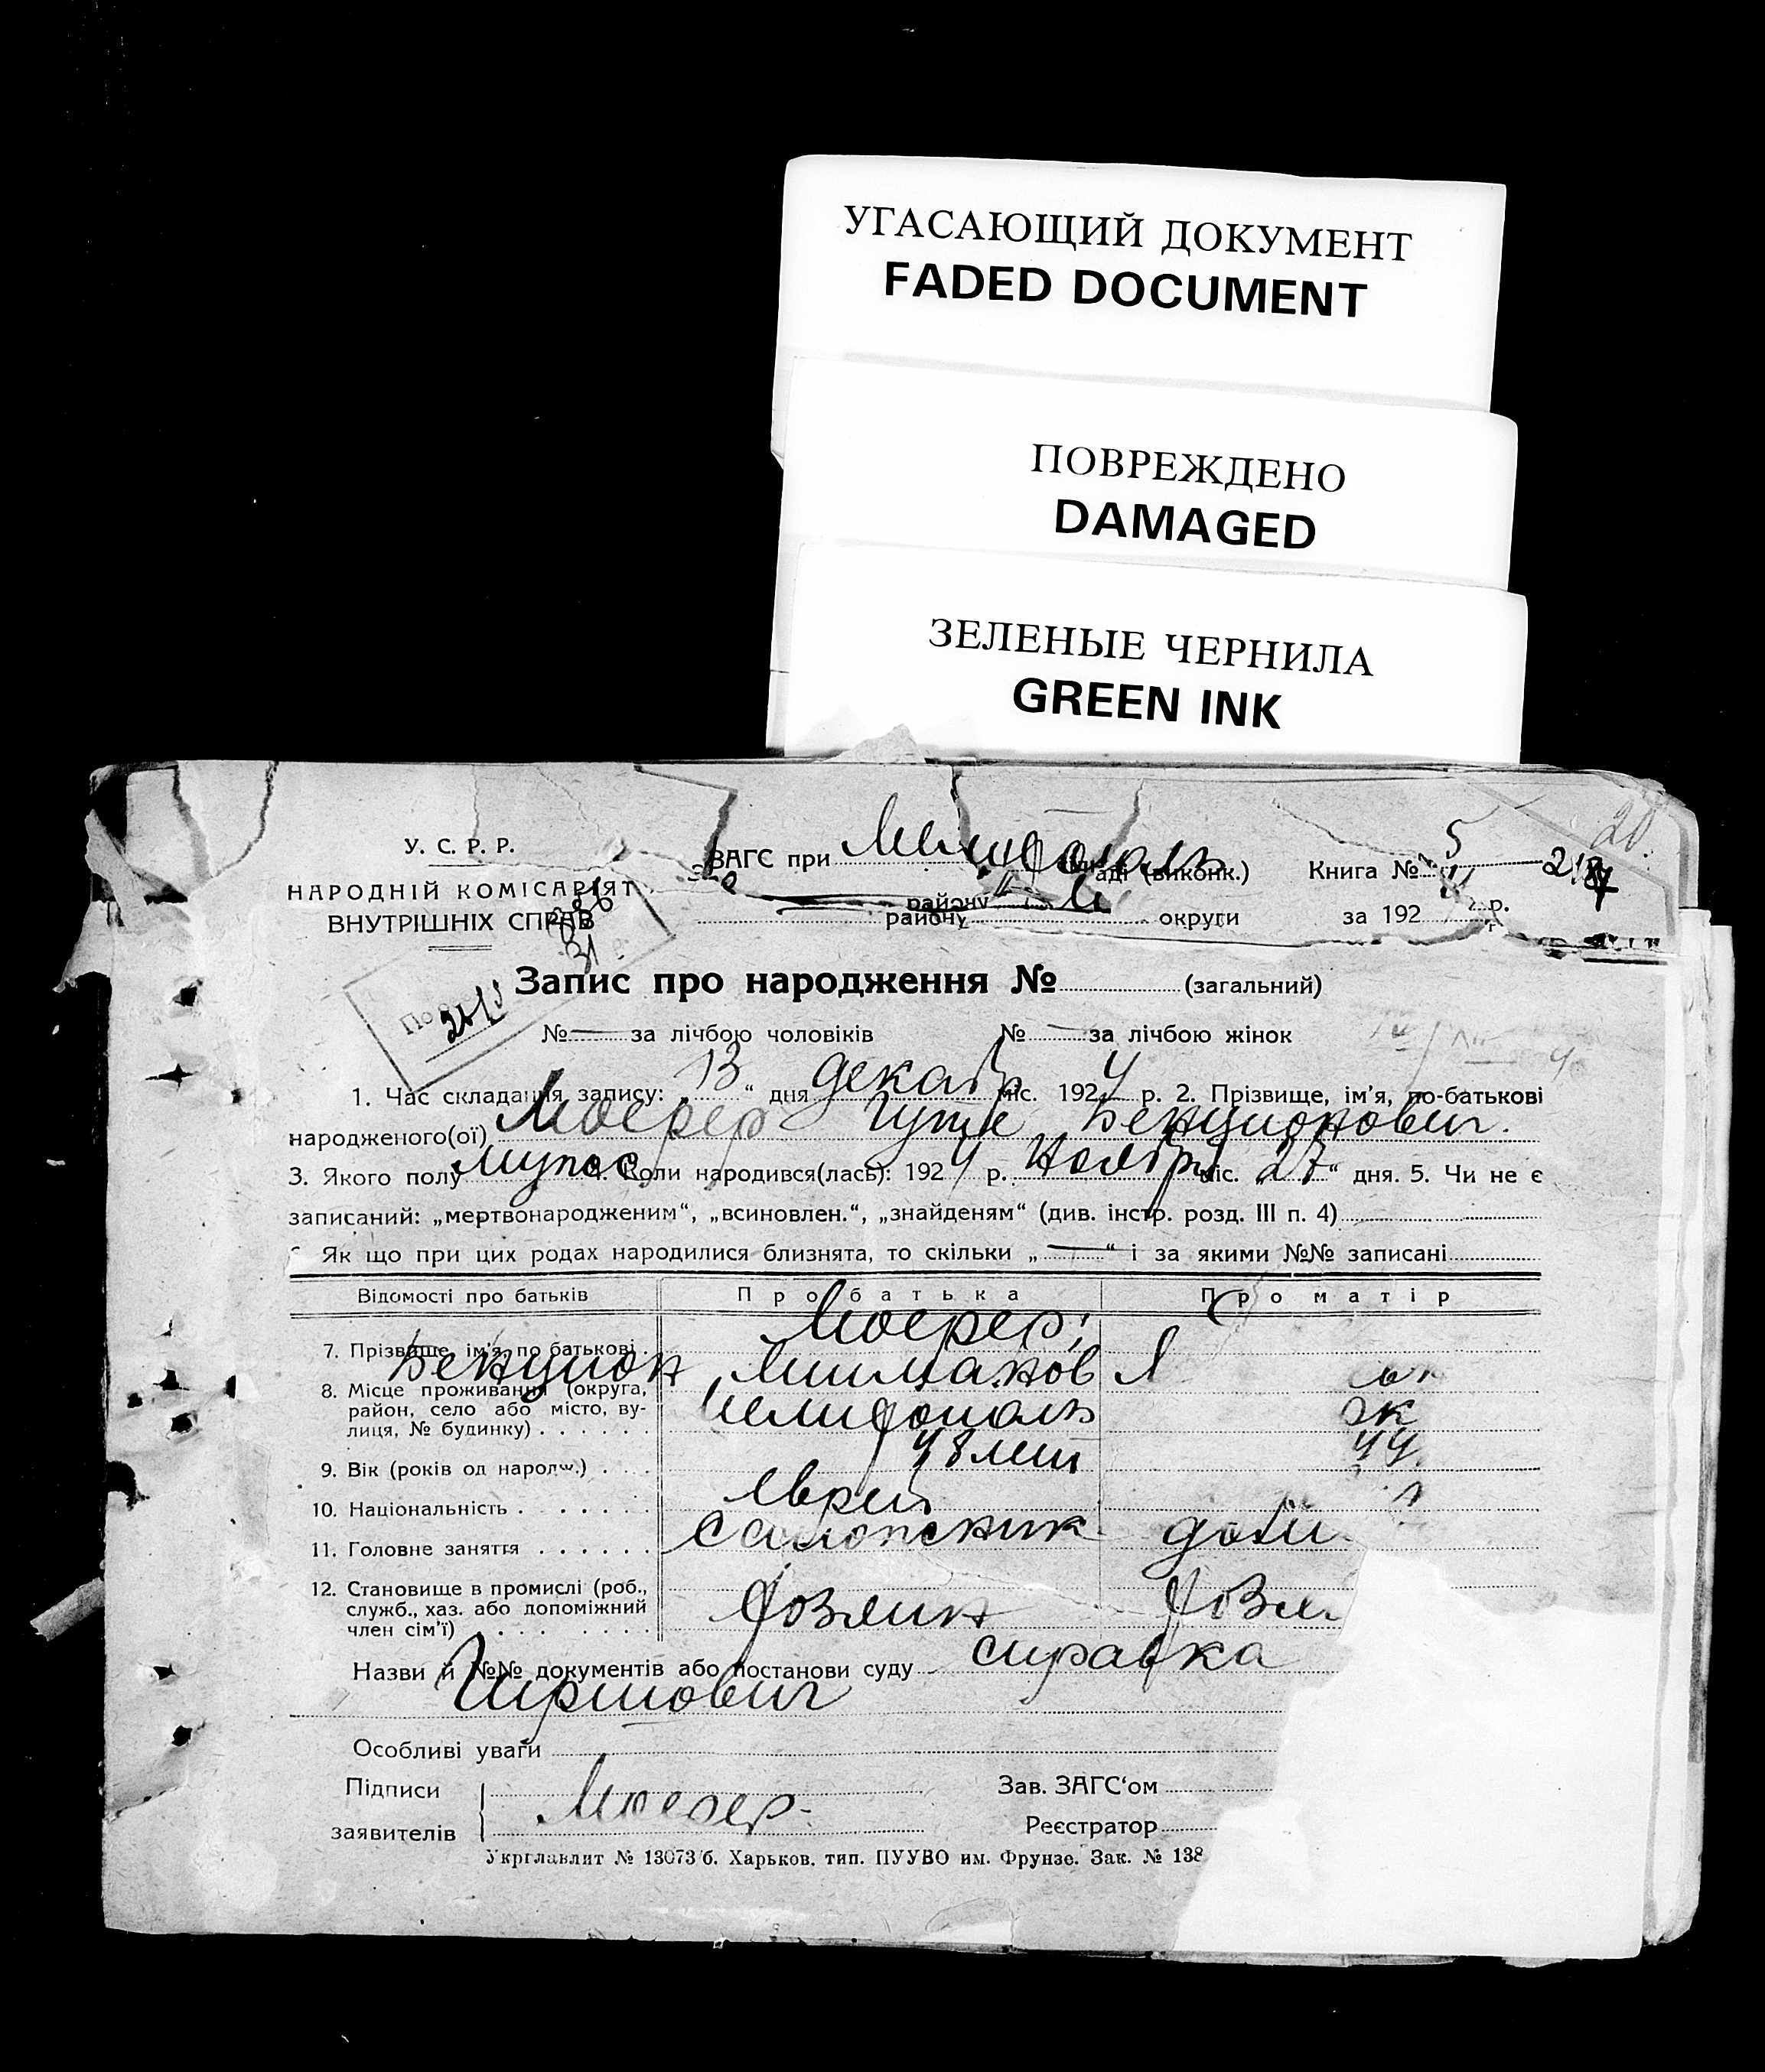 УГАСАЮЩИЙ ДОКУМЕНТ
FADED DOCUMENT
ПОВРЕЖДЕНО
DAMAGED
ЗЕЛЕНЫЕ ЧЕРНИЛА
GREEN INK
20
У. С. Р. Р.
НАРОДНІЙ КОМІСАРІЯТ
ВНУТРІШНІХ СПРАВ
ЗАГС при Мелитополь аді (виконк.) Книга № 5
району
району округи за 192 р.
Запис про народження № (загальний)
№ за лічбою чоловіків № за лічбою жінок
1. Час складання запису: 13 “ дня декабр міс. 1924 р. 2. Прізвище, ім'я, по-батькові
народженого(ої) Моерер Бенционович.
3. Якого полу мужс 4. Коли народився(лась): 1924 р. Ноябр міс. “ дня. 5. Чи не є
записаний: „мертвонародженим“, „всиновлен.“, „знайденям“ (див. інстр. розд. III п. 4)
Як що при цих родах народилися близнята, то скільки „—“ і за якими №№ записані
Відомості про батьків Про батька Про матір
7. Прізвище, ім'я, по батькові Моерер,
Бенцион
8. Місце проживання (округа,
район, село або місто, ву-
лиця, № будинку) Мелитополь
9. Вік (років од народж.) 48 лет 44
10. Національність Еврей
11. Головне заняття
12. Становище в промислі (роб.,
служб., хаз. або допоміжний
член сім'ї) Хозяин Хозя
Назви й №№ документів або постанови суду справка
Гиршович
Особливі уваги
Підписи Зав. ЗАГС‘ом
заявителів Моерер Реєстратор
Укрглавлит № 13073/б. Харьков. тип. ПУУВО им. Фрунзе. Зак. № 138